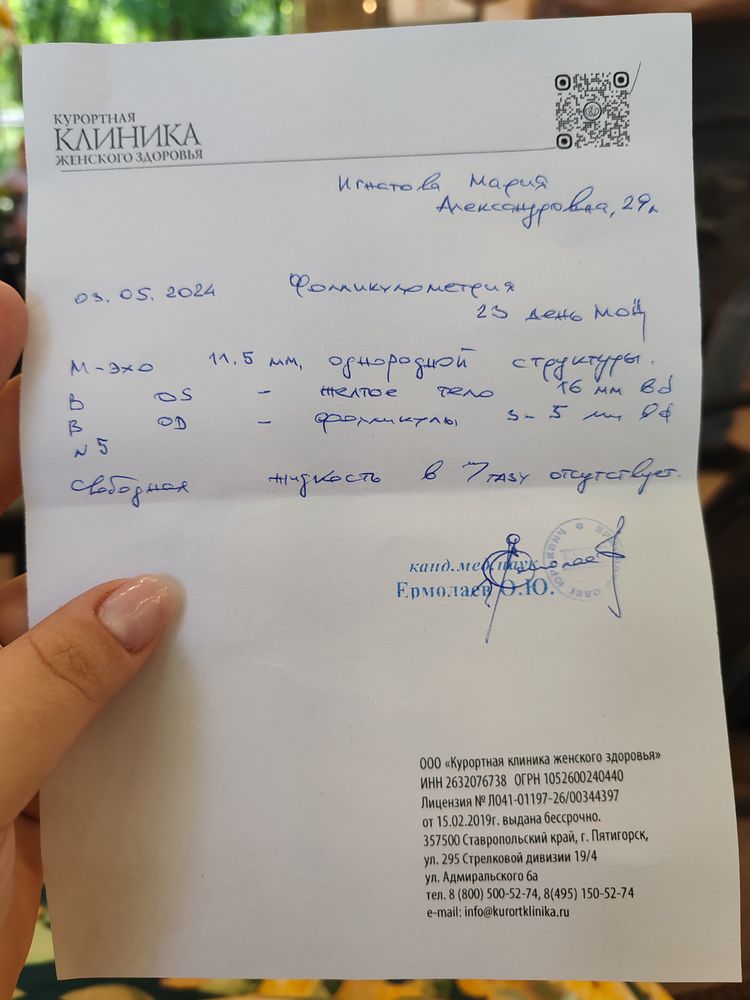 КУРОРТНАЯ
КЛИНИКА
ЖЕНСКОГО ЗДОРОВЬЯ
Игнатова Мария
Александровна, 29л
03.05.2024 Фолликулометрия
23 день МОЦ
М-эхо 11,5 мм, однородной структуры.
В OS - желтое тело 16 мм в d
В OD - фолликулы 3-5 мм в d
N 5
Свободная жидкость в м/тазу отсутствует.
канд.мед.наук
Ермолаев О.Ю.
ООО «Курортная клиника женского здоровья»
ИНН 2632076738 ОГРН 1052600240440
Лицензия № Л041-01197-26/00344397
от 15.02.2019г. выдана бессрочно.
357500 Ставропольский край, г. Пятигорск,
ул. 295 Стрелковой дивизии 19/4
ул. Адмиральского 6а
тел. 8 (800) 500-52-74, 8(495) 150-52-74
e-mail: info@kurortklinika.ru